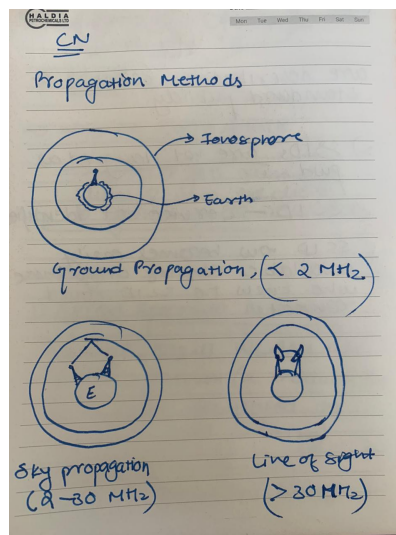 HALDIA
PETROCHEMICALS LTD
Mon Tue Wed Thu Fri Sat Sun
CN
Propagation Methods
Ionosphere
Earth
Ground Propagation, (< 2 MHz)
E
Sky propagation
(2-30 MHz)
Line of Sight
(> 30 MHz)